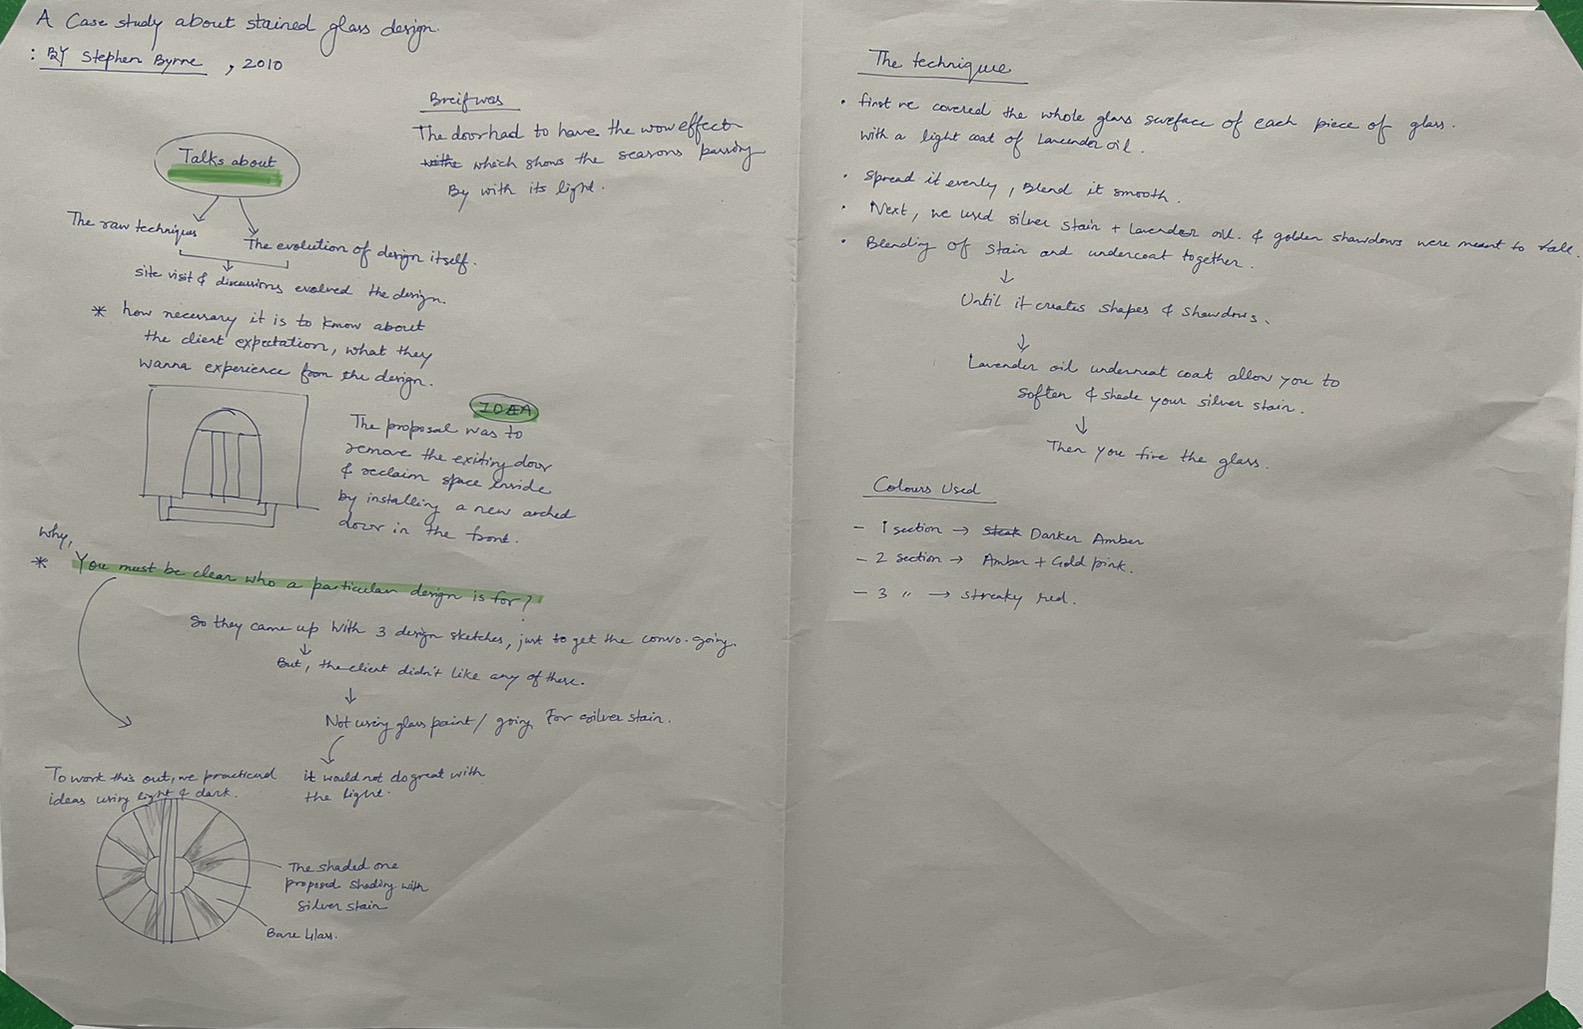 A Case study about stained glass design.
: BY Stephen Byrne , 2010
Breif was
The door had to have the wow effect
which shows the seasons passing
By with its light.
Talks about
The raw techniques
The evolution of design itself.
site visit & discussions evolved the design.
* how necessary it is to know about
the client expectation, what they
wanna experience from the design.
IDEA
The proposal was to
remove the exiting door
& reclaim space inside
by installing a new arched
door in the front.
Why,
* You must be clear who a particular design is for?
So they came up with 3 design sketches, just to get the convo. going.
↓
But, the client didn't like any of these.
↓
Not using glass paint / going For silver stain.
it would not do great with
the light.
To work this out, we practiced
ideas using light & dark.
The shaded one
proposed shading with
Silver stain
Bare Glass.
The technique
• first we covered the whole glass surface of each piece of glass.
with a light coat of Lavender oil.
• Spread it evenly, Blend it smooth.
• Next, we used silver stain + lavender oil. & golden shawdows were meant to
• Blending of stain and undercoat together.
↓
Until it creates shapes & shawdows.
↓
Lavender oil underneat coat allow you to
soften & shade your silver stain.
↓
Then you fire the glass.
Colours Used
- 1 section → Darker Amber
- 2 section → Amber + Gold pink.
- 3 " → streaky red.